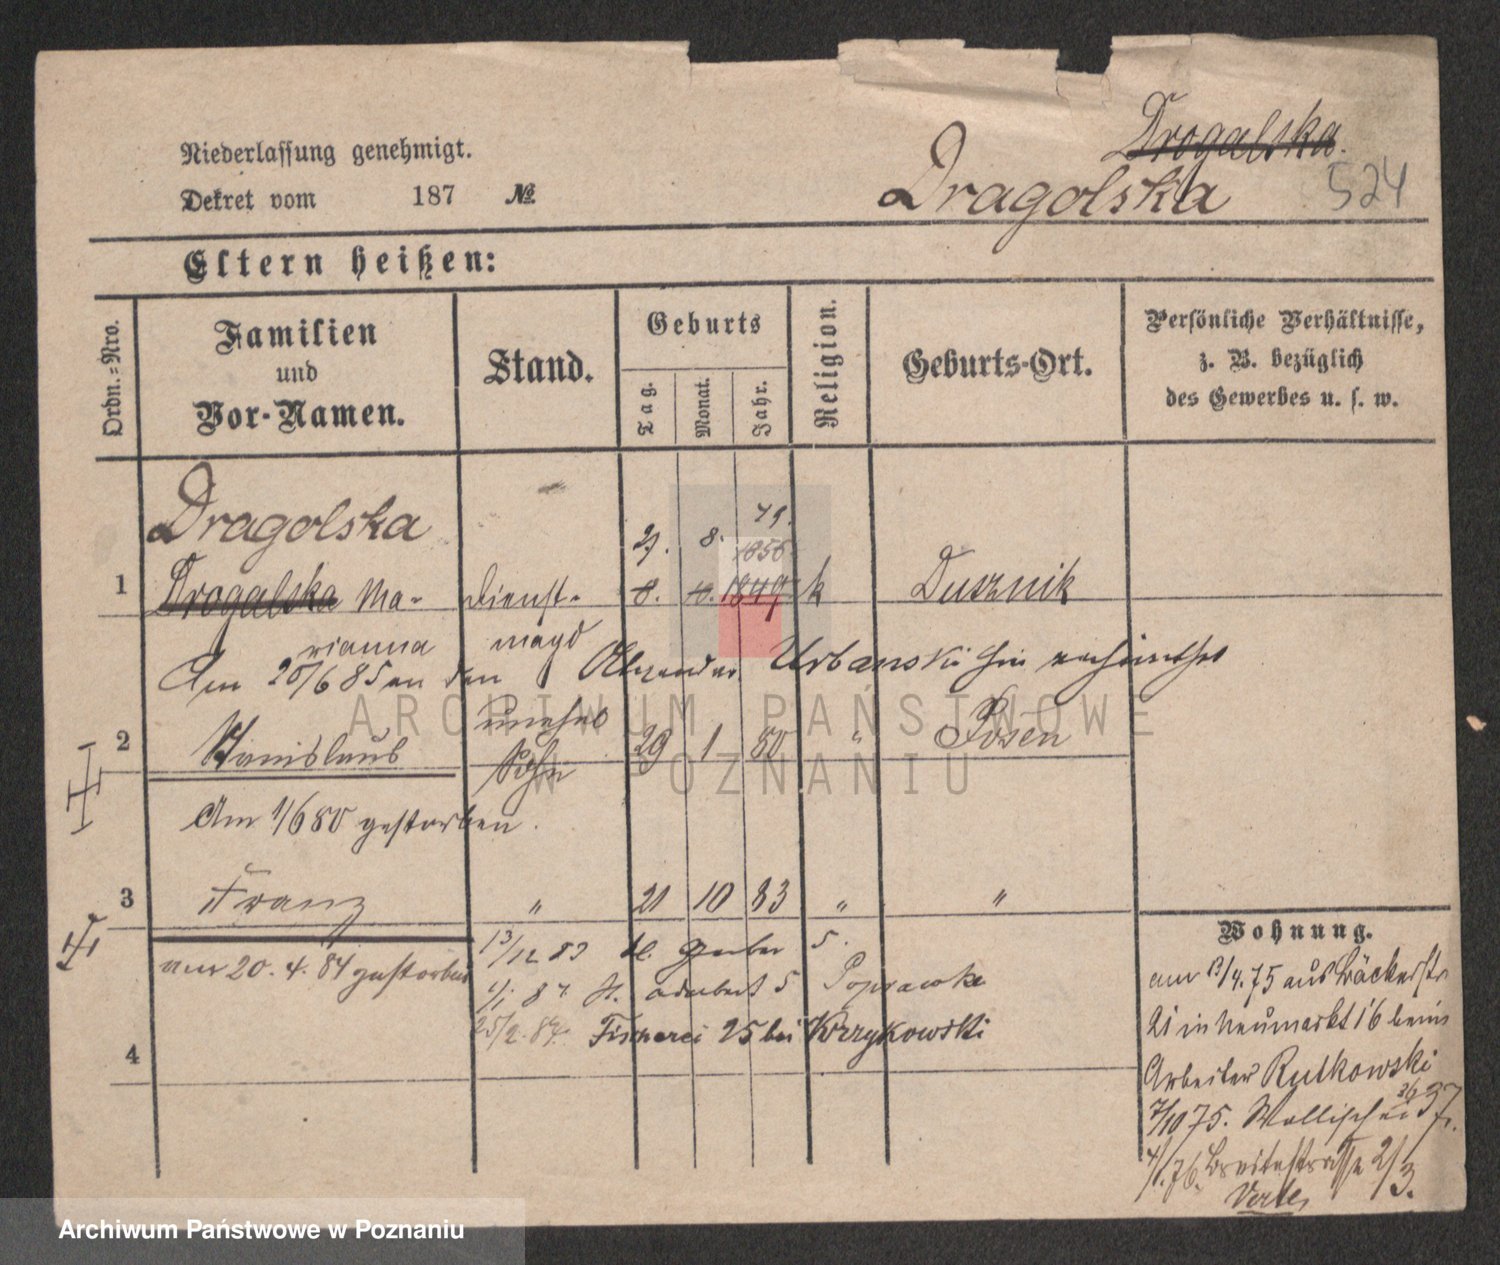 Drogalska.
Niederlassung genehmigt.
Dragolska 524
Dekret vom 187 №
Eltern heißen:
Ordn.=Nro.
Familien
und
Vor-Namen.
Stand.
Geburts
Tag.
Monat.
Jahr.
Religion.
Geburts-Ort.
Persönliche Verhältnisse,
z. B. bezüglich
des Gewerbes u. s. w.
Dragolska
1 Drogalska Ma- Dienst- 8. 1849 k Dusznik
8. 1856
rianna magd
Am 25/6 85 an den Urbanski
unehel
2 Stanislaus Sohn 29 1 80 " Posen
Am 1/6 80 gestorben.
3 Franz " 21 10 83 " "
am 20. 4. 84 gestorben
13/12 83 kl. Gerber 5.
St. Adalbert 5
25/2. 84 Fischerei 25 bei Korzykowski
4
Wohnung.
am 13/4. 75 aus Bäckerstr
21 in Neumarkt 16 beim
Arbeiter Rutkowski
7/10 75. Wallischei 37.
4/1. 76. Breitestrasse 2/3.
Verte
ARCHIWUM PAŃSTWOWE
W POZNANIU
Archiwum Państwowe w Poznaniu